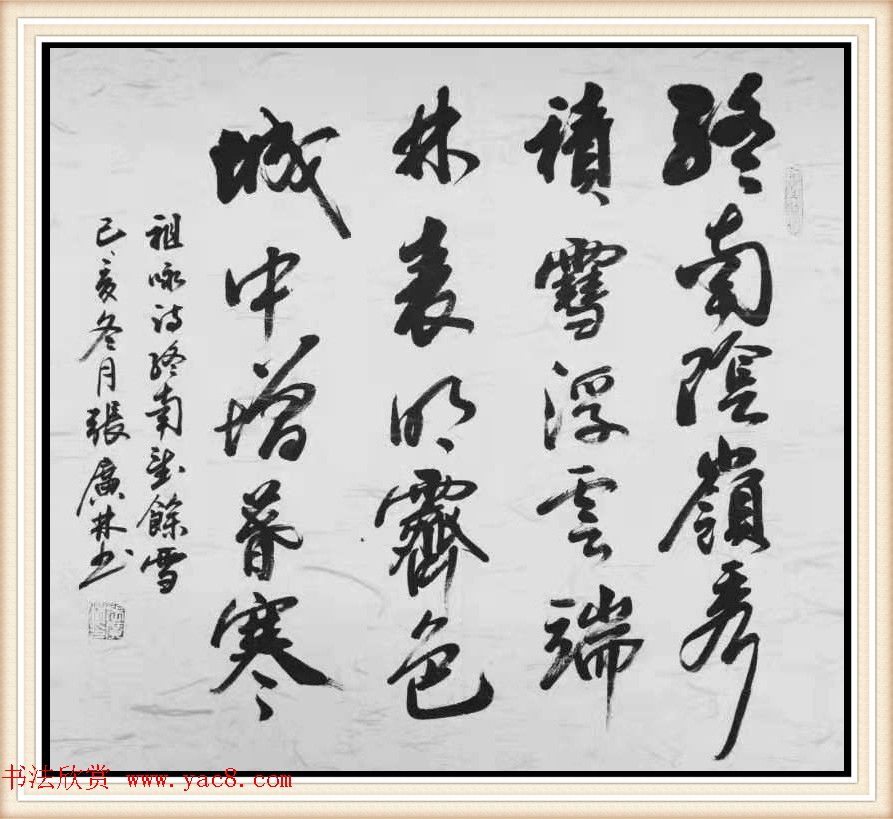 終南陰嶺秀
積雪浮雲端
林表明霽色
城中增暮寒
祖咏诗終南望餘雪
己亥冬月張廣林书
书法欣赏 www.yac8.com